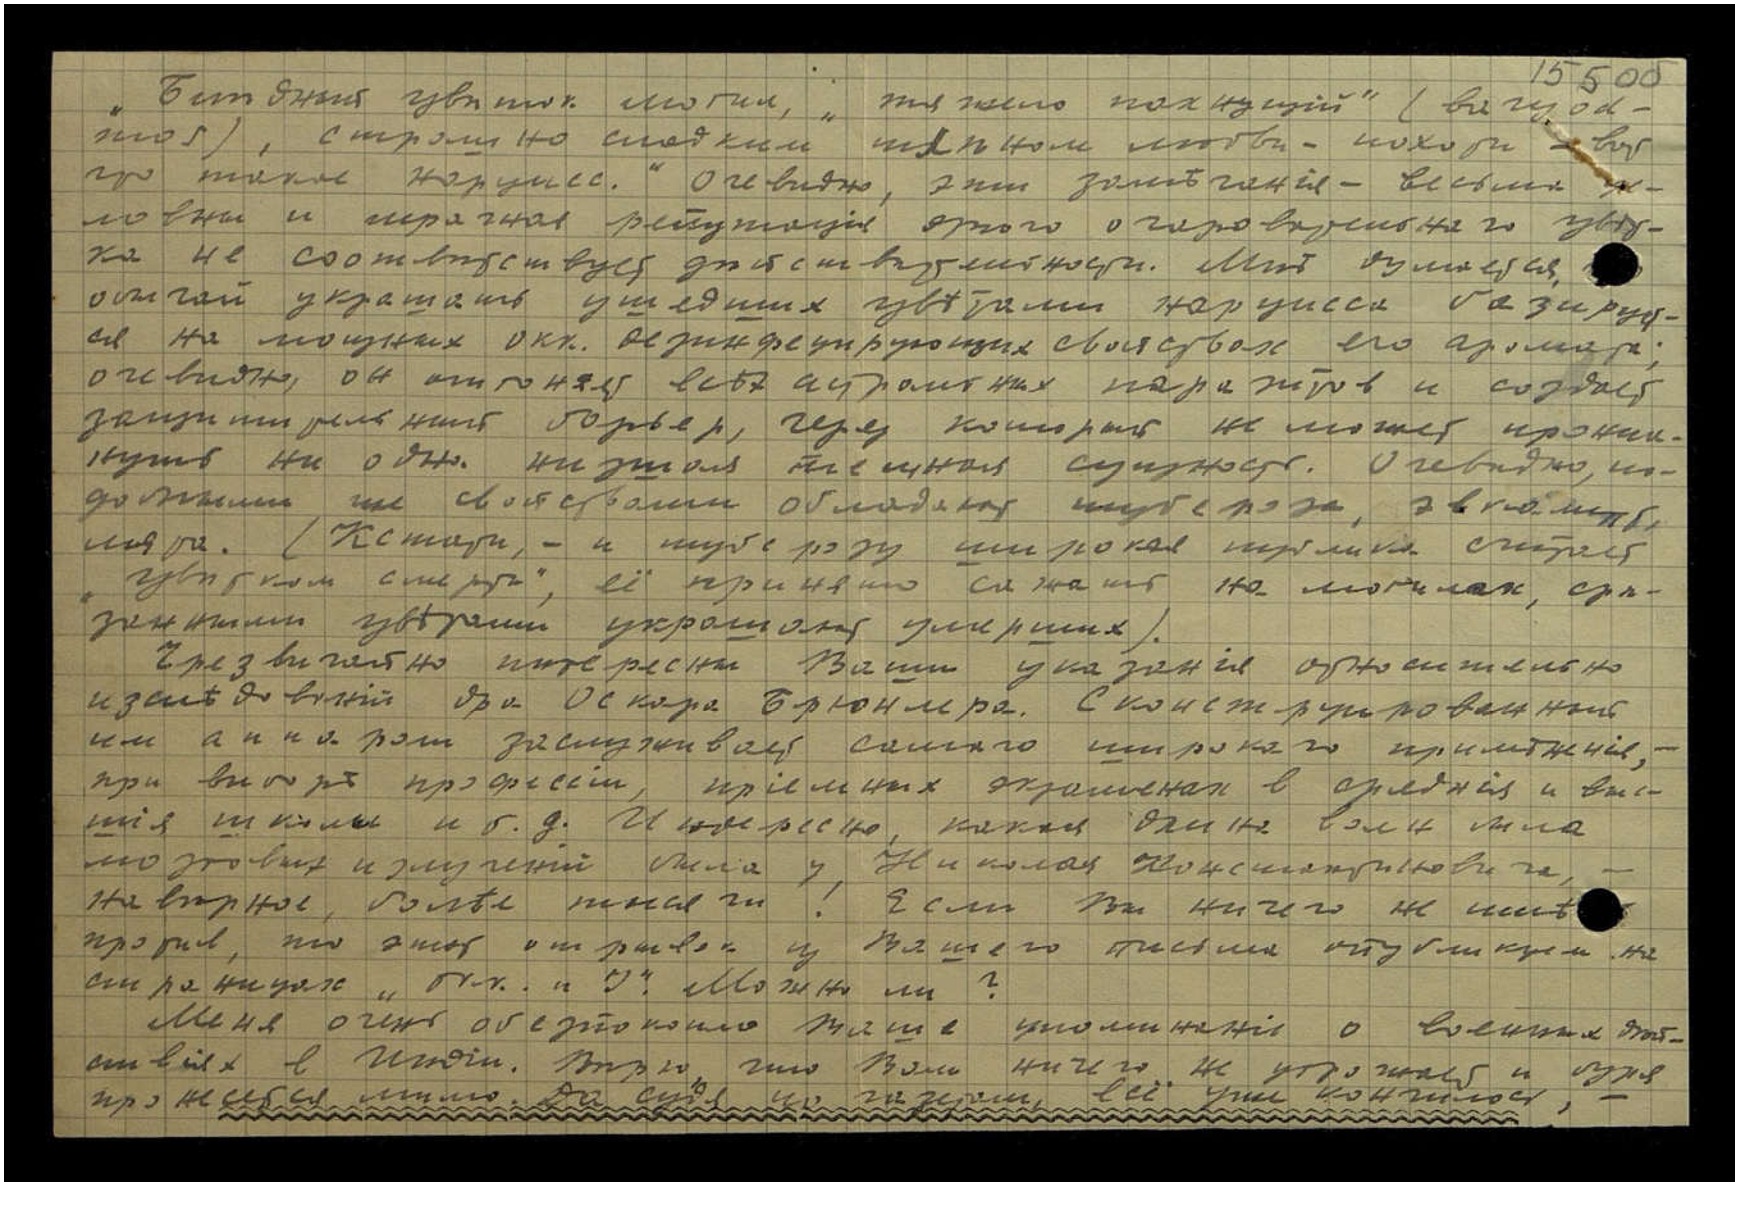 155об
„Блѣдный цвѣток могил, „тяжело пахнущій" (
), страшно сладким любви - похоти - вот
что такое нарцисс." Очевидно, эти замѣчанія - весьма ус-
ловны и мрачная репутація этого очаровательнаго цвѣт-
ка не соответствует дѣйствительности. Мнѣ думается,
обычай украшать ушедших цвѣтами нарцисса базирует-
ся на мощных окк. дезинфецирующих свойствах его аромата;
очевидно, он отгоняет всѣх астральных паразитов и создает
защитительный барьер, через который не может проник-
нуть ни одна низшая темная сущность. Очевидно, по-
добными же свойствами обладают тубероза, эвкалипт,
мята. (Кстати, - и туберозу широкая публика считает
„цвѣтком смерти", её принято сажать на могилах, срѣ-
занными цвѣтами украшают умерших).
Чрезвычайно интересны Ваши указанія относительно
изслѣдованій дра Оскара Брюнлера. Сконструированный
им аппарат заслуживает самаго широкаго примѣненія, -
при выборѣ профессіи, пріемных экзаменах в среднія и выс-
шія школы и т. д. Интересно, какая длина волн была
мозговых излученій была у Николая Константиновича, -
навѣрное, болѣе тысячи! Если Вы ничего не имѣете
против, то этот отрывок из Вашего письма опубликуем на
страницах „Окк. и І". Можно ли?
Меня очень обезпокоило Ваше упоминаніе о военных дѣй-
ствіях в Индіи. Вѣрю, что Вам ничего не угрожает и буря
пронесется мимо. Да судя по газетам, всё уже кончилось, -